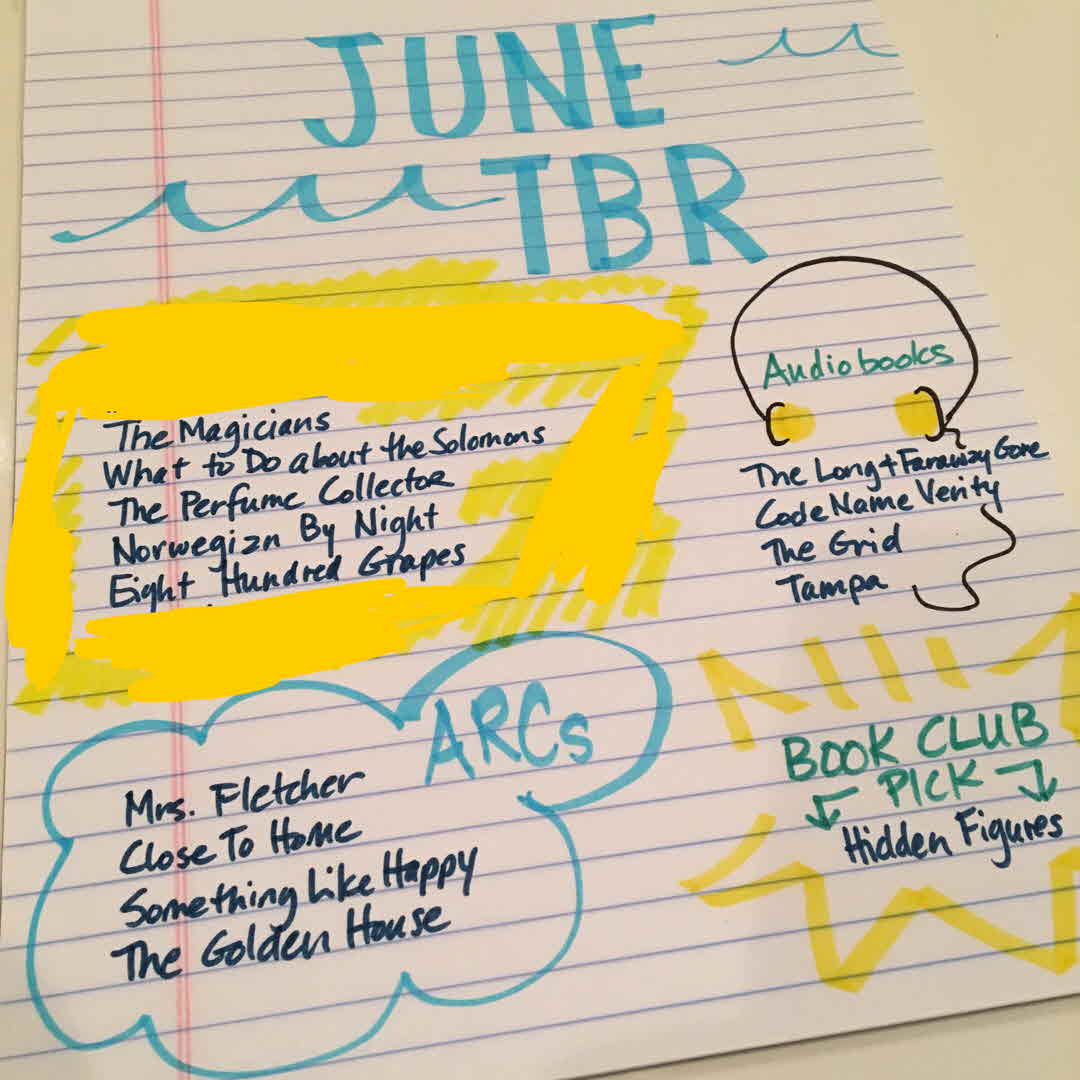 JUNE
TBR
The Magicians
What to Do about the Solomons
The Perfume Collector
Norwegian By Night
Eight Hundred Grapes
Audiobooks
The Long + Faraway Gone
Code Name Verity
The Grid
Tampa
ARCs
Mrs. Fletcher
Close To Home
Something Like Happy
The Golden House
BOOK CLUB
PICK
Hidden Figures